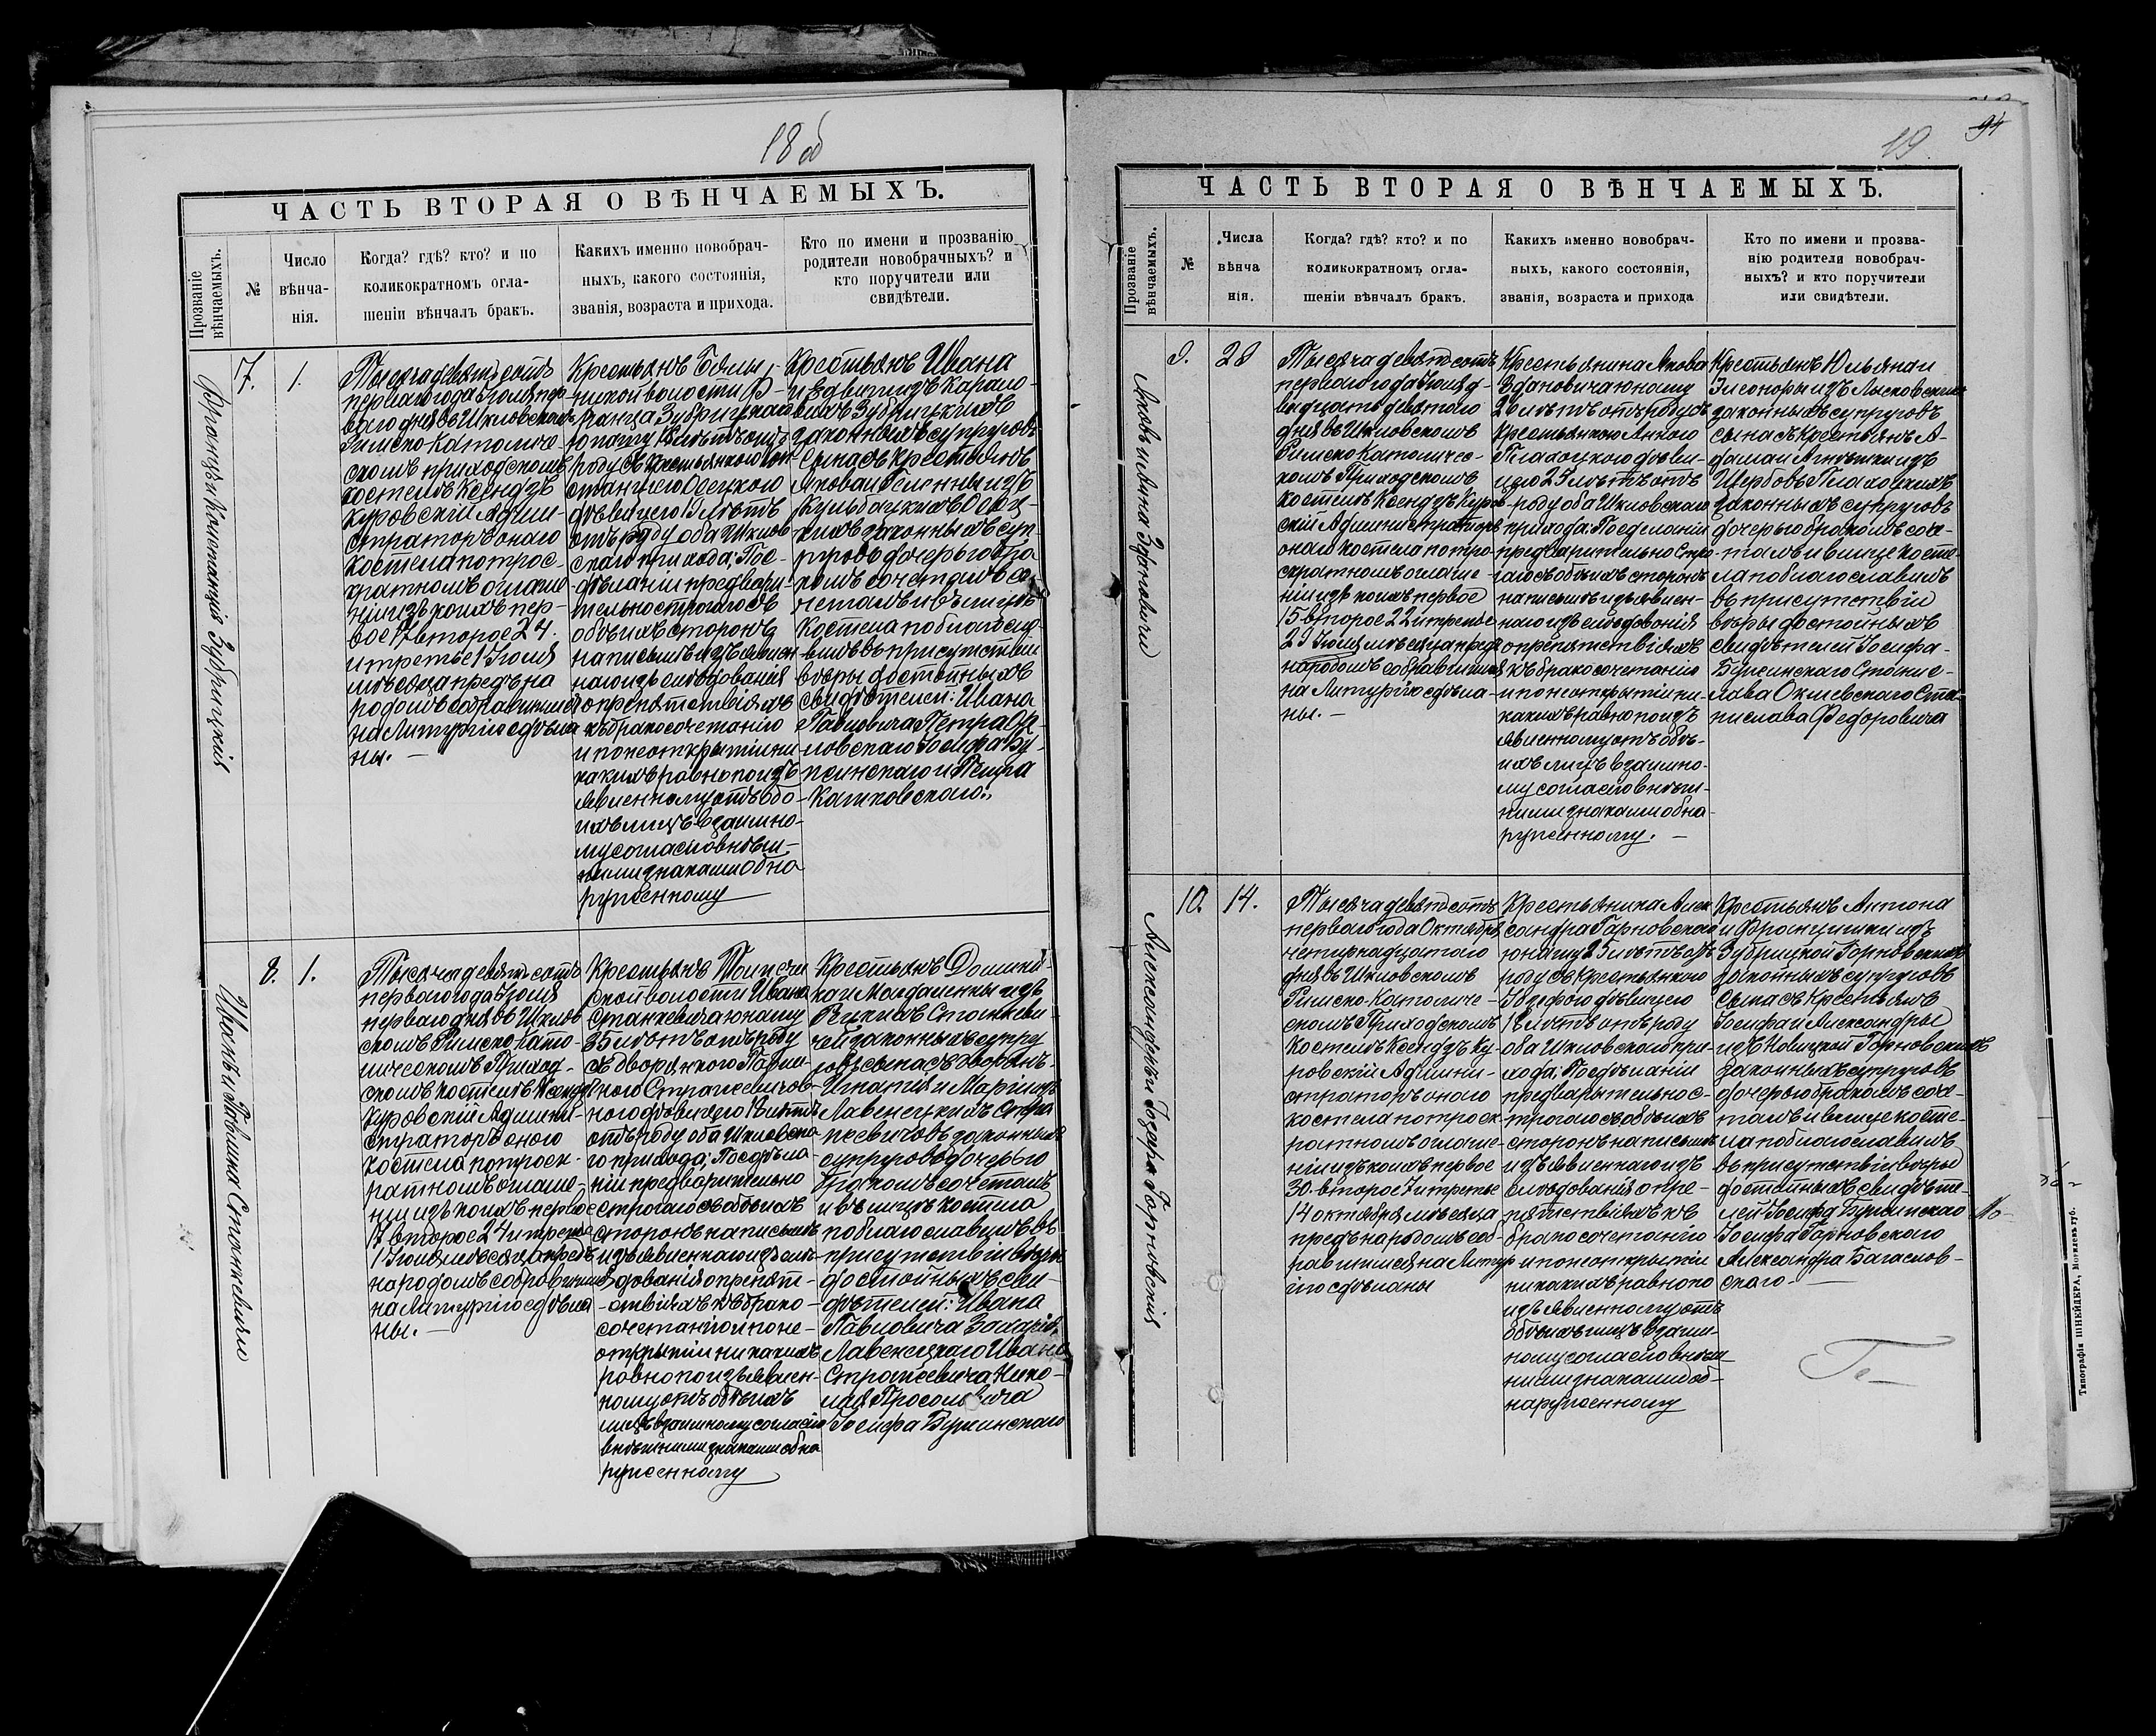 18 об
ЧАСТЬ ВТОРАЯ О ВѢНЧАЕМЫХЪ.
Прозваніе вѣнчаемыхъ.
№
Число вѣнча-
нія.
Когда? гдѣ? кто? и по
коликократномъ огла-
шеніи вѣнчалъ бракъ.
Какихъ именно новобрач-
ныхъ, какого состоянія,
званія, возраста и прихода.
Кто по имени и прозванію
родители новобрачныхъ? и
кто поручители или
свидѣтели.
Францъ и Констанція Зубрицкія
7.
1.
Тысяча девятьсотъ
перваго года Іюля пер-
ваго дня въ Шкловскомъ
Римско Католиче-
скомъ приходскомъ
костелѣ Ксендзъ
Куровскій Админи-
страторъ онаго
костела по трое-
кратномъ оглаше-
ніи изъ коихъ пер-
вое 17 второе 24.
и третье 1 Іюля
мѣсяца предъ на
родомъ собравшимся
на Литургію сдѣла
ны. —
Крестьянъ
ницкой волости Ф-
ранца Зубрицкаго
юношу
роду съ крестьянкою Кон
станціею Осецкою
дѣвицею 18 лѣтъ
отъ роду оба Шклов
скаго прихода; По с-
дѣланіи предвари-
тельно строгаго съ
обѣихъ сторонъ
на письмѣ изъявлен
наго изслѣдованія
о препятствіяхъ
къ бракосочетанію
и по неоткрытіи ни
какихъ равно по изъ
явленному отъ обо-
ихъ лицъ взаимно-
му согласію внѣш-
ними знаками обна
руженному
Крестьянъ Ивана
и Едвиги изъ
Зубрицкихъ
законныхъ супруговъ
сына съ крестьянъ
Якова и Гелены изъ
Кульбацкихъ Осец-
кихъ законныхъ суп-
руговъ дочерью бра
комъ сочеталъ
и въ лицѣ
Костела поблагосло-
вилъ въ присутствіи
вѣры достойныхъ
свидѣтелей: Ивана
Павловича Петра
Іосифа Бу-
и Петра
Катковскаго.
Иванъ и Павлина Станкевичи
8.
1.
Тысяча девятьсотъ
перваго года Іюля
перваго дня въ Шклов
скомъ Римско Като-
лическомъ Приход-
скомъ костелѣ Ксендзъ
Куровскій Админи-
страторъ онаго
костела по троек-
ратномъ оглаше-
ніи изъ коихъ первое
17 второе 24 и третье
1 Іюля мѣсяца предъ
народомъ собравшимся
на Литургію сдѣла
ны. —
Крестьянъ
ской волости Ивана
Станкевича юношу
35 лѣтъ отъ роду
съ дворянкою Павли-
ною
ною дѣвицею 18 лѣтъ
отъ роду оба Шкловска
го прихода; По сдѣла-
ніи предварительно
строгаго съ обѣихъ
сторонъ на письмѣ
изъявленнаго изслѣ-
дованія о препят-
ствіяхъ къ брако-
сочетанію и по не-
открытіи никакихъ
равно по изъявлен-
ному отъ обѣихъ
лицъ взаимному согласію
внѣшними знаками обна
руженному
Крестьянъ Домини-
ка и Магдалены изъ
Станкеви-
чей законныхъ супру
говъ сына съ дворянъ
Игнатія и Маріи изъ
Лавенецкихъ
законныхъ
супруговъ дочерью
бракомъ сочеталъ
и въ лицѣ костела
поблагословилъ въ
присутствіи вѣры
достойныхъ сви-
дѣтелей: Ивана
Павловича Захарія
Лавенецкаго Ивана
Нико-
лая
Іосифа
19.
94
ЧАСТЬ ВТОРАЯ О ВѢНЧАЕМЫХЪ.
Прозваніе вѣнчаемыхъ.
№
Числа
вѣнча
нія.
Когда? гдѣ? кто? и по
коликократномъ огла-
шеніи вѣнчалъ бракъ.
Какихъ именно новобрач-
ныхъ, какого состоянія,
званія, возраста и прихода
Кто по имени и прозва-
нію родители новобрач-
ныхъ? и кто поручители
или свидѣтели.
Яковъ и Анна Здановичи
9.
28
Тысяча девятьсотъ
перваго года Іюля д-
вадцать девятаго
дня въ Шкловскомъ
Римско Католичес-
комъ Приходскомъ
костелѣ Ксендзъ Куров-
скій Администраторъ
онаго костела по трое-
скратномъ оглаше-
ніи изъ коихъ первое
15 второе 22 и третье
29 Іюля мѣсяца предъ
народомъ собравшимся
на Литургію сдѣла-
ны. —
Крестьянина Якова
Здановича юношу
26 лѣтъ отъ роду съ
крестьянкою Анною
дѣви-
цею 25 лѣтъ отъ
роду оба Шкловскаго
прихода; По сдѣланіи
предварительно стро-
гаго съ обѣихъ сторонъ
на письмѣ изъявлен-
наго изслѣдованія
о препятствіяхъ
къ бракосочетанію
и по неоткрытіи ни-
какихъ равно по изъ
явленному отъ обѣ-
ихъ лицъ взаимно-
му согласію внѣш-
ними знаками обна-
руженному. —
Крестьянъ Юльяна и
Элеоноры изъ
законныхъ супруговъ
сына съ Крестьянъ А-
дама и Агнешки изъ
законныхъ супруговъ
дочерью бракомъ соче-
талъ и въ лице косте-
ла поблагославилъ
въ присутствіи
вѣры достойныхъ
свидѣтелей Іосифа
Станис-
лава Ста-
нислава Федоровича
Александръ и Іозефа Горновскія
10.
14.
Тысяча девятьсотъ
перваго года Октября
четырнадцатаго
дня въ Шкловскомъ
Римско-Католиче-
скомъ Приходскомъ
Костелѣ Ксендзъ Ку-
ровскій Админи-
страторъ онаго
костела по троек-
ратномъ оглаше-
ніи изъ коихъ первое
30. второе 7 и третье
14 октября мѣсяца
предъ народомъ соб-
равшимся на Литур
гію сдѣланы
Крестьянина Алек
сандра Горновскаго
юношу 25 лѣтъ отъ
роду съ Крестьянкою
Іозефою дѣвицею
18 лѣтъ отъ роду
оба Шкловскаго при-
хода; По сдѣланіи
предварительно с-
трогаго съ обѣихъ
сторонъ на письмѣ
изъявленнаго изъ
слѣдованія о пре-
пятствіяхъ къ
бракосочетанію
и по неоткрытіи
никакихъ равно по
изъявленному отъ
обѣихъ лицъ взаим-
ному согласію внѣш-
ними знаками об-
наруженному
Крестьянъ Антона
и Францишки изъ
Зубрицкой Горновскихъ
законныхъ супруговъ
сына съ Крестьянъ
Іосифа и Александры
изъ Новицкой Горновскихъ
законныхъ супруговъ
дочерью бракомъ соче-
талъ и въ лице косте-
ла поблагославилъ
въ присутствіи вѣры
достойныхъ свидѣте-
лей Іосифа
Іосифа Горновскаго
Александра
скаго —
Типографія ШНЕЙДЕРА, Могилевъ губ.